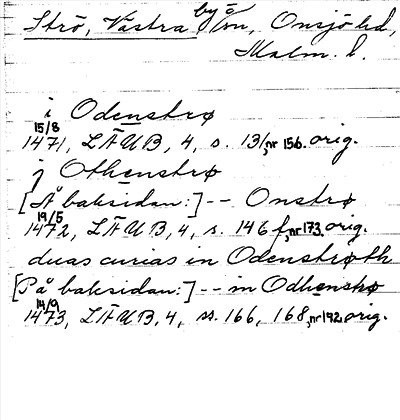 Strö, Västra by o. sn, Onsjö hd,
Malm. l.
i Odenstrø
15/8 1471, LÄUB, 4, s. 131, nr 156. orig.
j Othenstrø
[På baksidan:] -- Onstrø
19/5 1472, LÄUB, 4, s. 146 f, nr 173. orig.
duas curias in Odenstrøth
[På baksidan:] -- in Odhenstrø
14/9 1473, LÄUB, 4, ss. 166, 168, nr 192. orig.